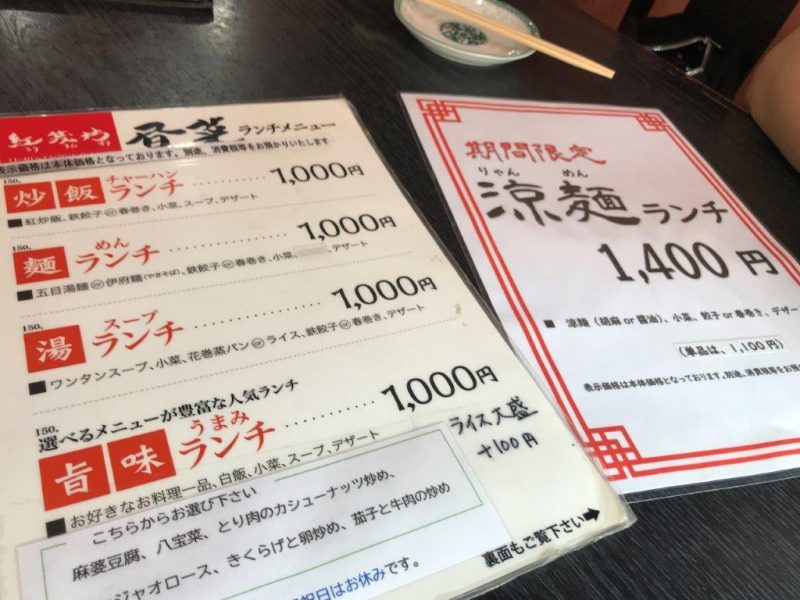 香華 ランチメニュー
表示価格は本体価格となっております。別途、消費税等をお預かりいたします
炒飯 チャーハン ランチ 1,000円
■紅炒飯、鉄餃子or春巻き、小菜、スープ、デザート
150.
麺 めん ランチ 1,000円
■五目湯麺or伊府麺(やきそば)、鉄餃子or春巻き、小菜、デザート
150.
湯 スープ ランチ 1,000円
■ワンタンスープ、小菜、花巻蒸パンorライス、鉄餃子or春巻き、デザート
150.
選べるメニューが豊富な人気ランチ
旨味 うまみ ランチ 1,000円
■お好きなお料理一品、白飯、小菜、スープ、デザート
ライス大盛
+100円
こちらからお選び下さい
麻婆豆腐、八宝菜、とり肉のカシューナッツ炒め、
ジャオロース、きくらげと卵炒め、茄子と牛肉の炒め
祝日はお休みです。
裏面もご覧下さい➡
期間限定
りゃん めん
涼麺ランチ
1,400円
■ 涼麺（胡麻or醤油）、小菜、餃子or春巻き、デザー
（単品は、1,100円）
表示価格は本体価格となっております。別途、消費税等をお預